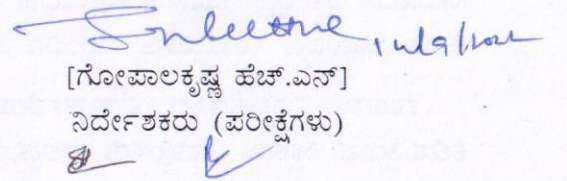 [ಗೋಪಾಲಕೃಷ್ಣ ಹೆಚ್.ಎನ್]
ನಿರ್ದೇಶಕರು (ಪರೀಕ್ಷೆಗಳು)